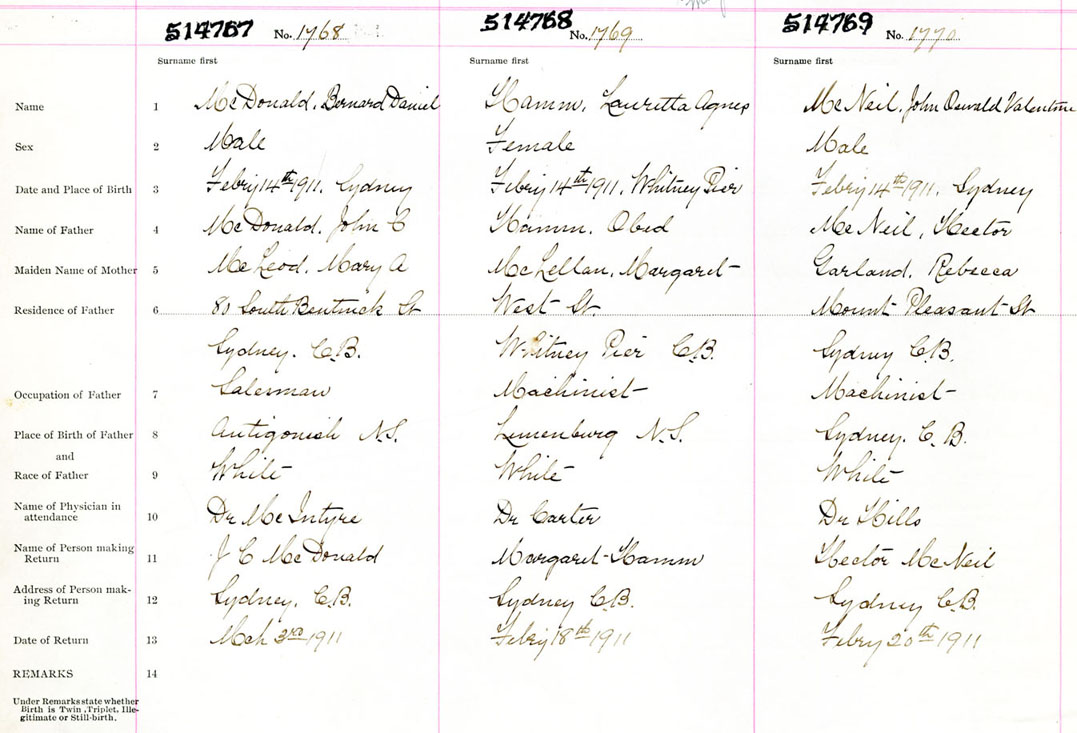 514767 No. 1768 514768 No. 1769 514769 No. 1770
Surname first Surname first Surname first
Name 1 McDonald, Bernard Daniel Hamm, Lauretta Agnes McNeil, John Oswald Valentine
Sex 2 Male Female Male
Date and Place of Birth 3 Febry 14th 1911, Sydney Febry 14th 1911, Whitney Pier Febry 14th 1911, Sydney
Name of Father 4 McDonald, John C Hamm, Obed McNeil, Hector
Maiden Name of Mother 5 McLeod, Mary A McLellan, Margaret Garland, Rebecca
Residence of Father 6 80 South Bentinck St West St. Mount Pleasant St
Sydney. C.B. Whitney Pier C.B. Sydney C.B.
Occupation of Father 7 Salesman Machinist Machinist
Place of Birth of Father 8 Antigonish N.S. Lunenburg N.S. Sydney. C.B.
and
Race of Father 9 White White White
Name of Physician in
attendance 10 Dr McIntyre Dr Carter Dr Hills
Name of Person making
Return 11 J C McDonald Margaret Hamm Hector McNeil
Address of Person mak-
ing Return 12 Sydney, C.B. Sydney C.B. Sydney C.B.
Date of Return 13 Mch 3rd 1911 Febry 18th 1911 Febry 20th 1911
REMARKS 14
Under Remarks state whether
Birth is Twin, Triplet, Ille-
gitimate or Still-birth.